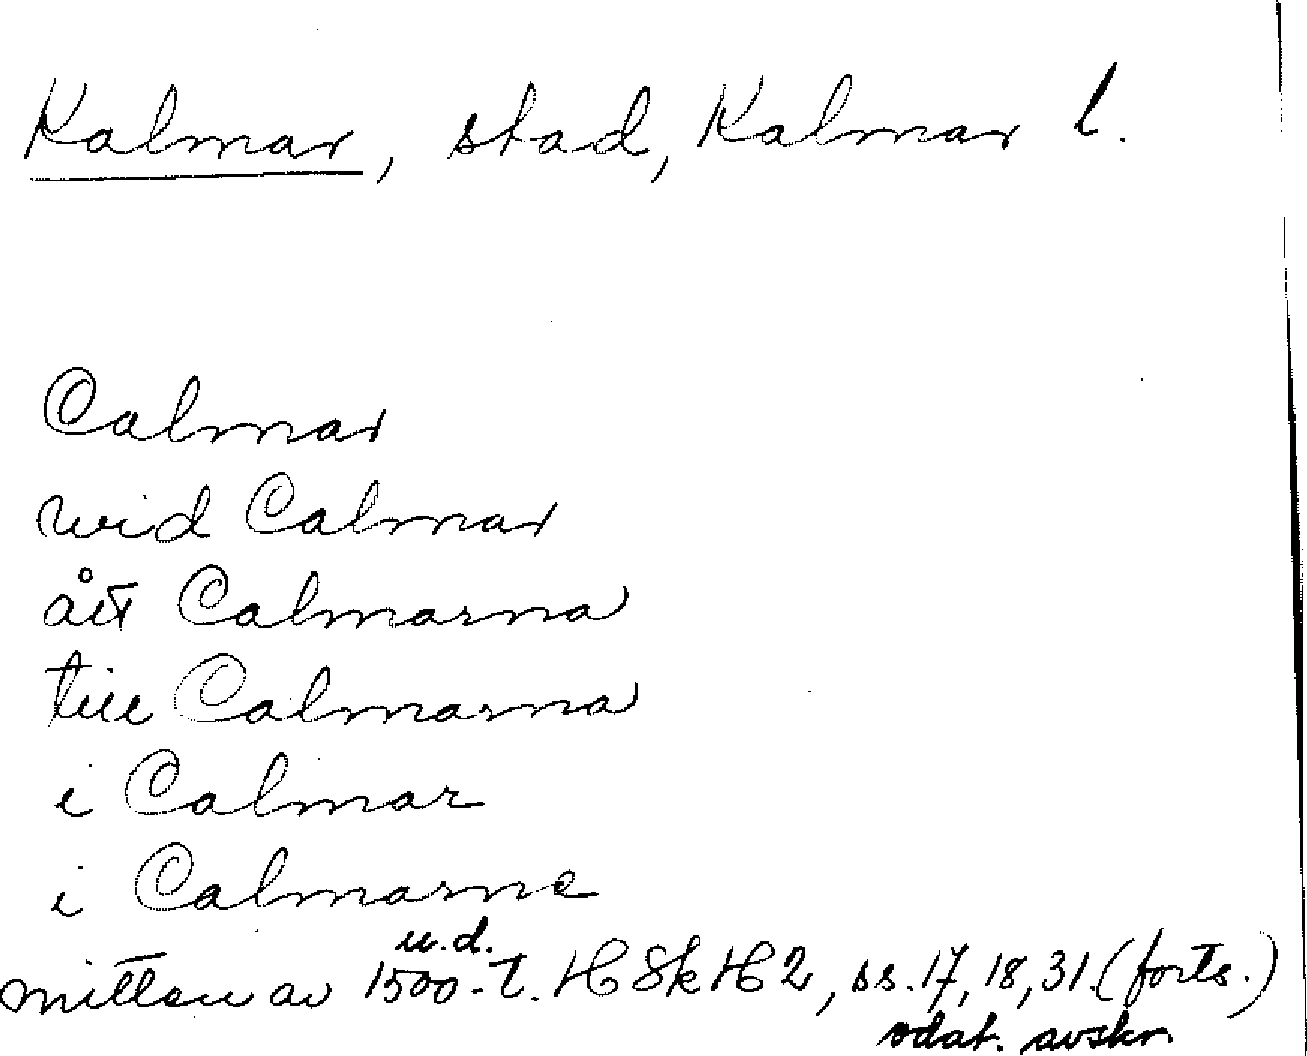 Kalmar, stad, Kalmar l.
Calmar
wid Calmar
ått Calmarna
till Calmarna
i Calmar
i Calmarne
u.d.
mitten av 1500-t. HSkH 2, ss. 17, 18, 31 (forts.)
odat. avskr.